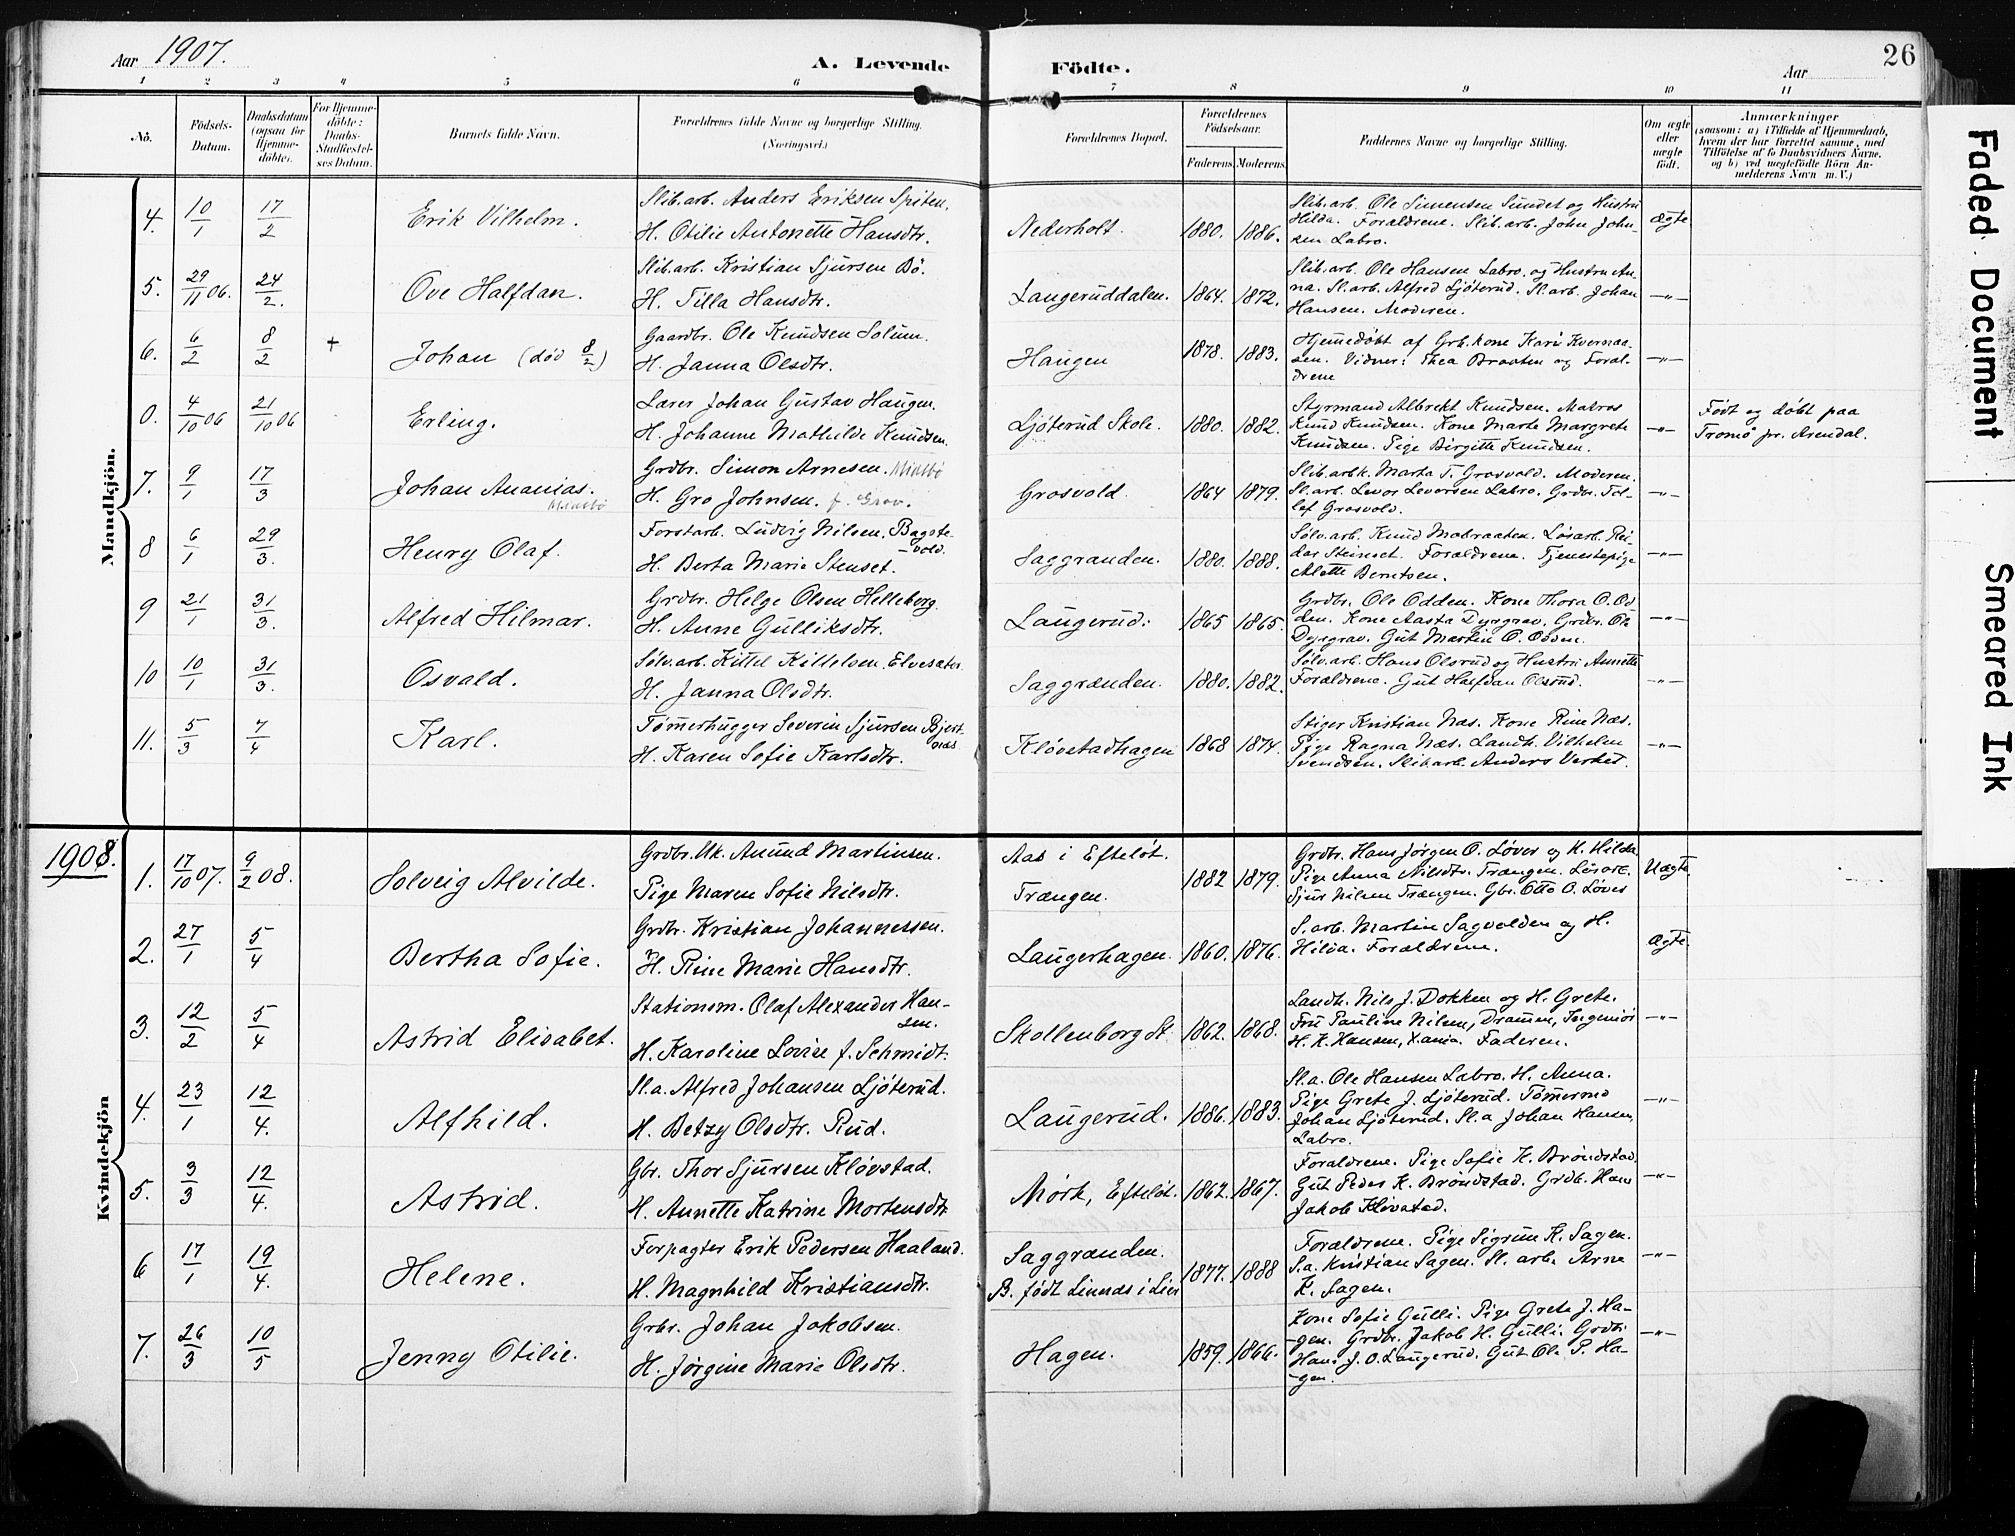 Aar 1907.
A. Levende
Födte.
Aar
26
1 2 3 4 5 6 7 8 9 10 11
No.
Födsels-
Datum.
Daabsdatum
(ogsaa for
Hjemme-
döbte).
For Hjemme-
döbte:
Daabs-
Stadfæstel-
ses Datum.
Barnets fulde Navn.
Forældrenes fulde Navne og borgerlige Stilling.
(Næringsvei.)
Forældrenes Bopæl.
Forældrenes
Födselsaar.
Faderens.
Moderens.
Faddernes Navne og borgerlige Stilling.
Om ægte
eller
uægte
födt.
Anmærkninger
(saasom: a) i Tilfælde af Hjemmedaab,
hvem der har forrettet samme, med
Tilföielse af to Daabsvidners Navne.
og b) ved uægtefödte Börn An-
melderens Navn m. V.)
Mandkjön.
4. 10/1 17/2 Erik Vilhelm.
Slib.arb. Anders Eriksen Spiten.
H. Otilie Antonette Hansdtr.
Nederholt. 1880. 1886.
Slib.arb. Ole Simensen Sundet og Hustru
Hilda. Forældrene. Slib.arb. John John-
sen Labro.
Ægte
5. 29/11 06. 24/2. Ove Halfdan.
Slib.arb. Kristian Sjursen Bö.
H. Tilla Hansdtr.
Laugeruddalen. 1864. 1872.
Slib.arb. Ole Hansen Labro. og Hustru An-
na. Sl.arb. Alfred Ljöterud. Sl.arb. Johan
Hansen. Moderen.
—"—
6. 6/2 8/2 + Johan (død 8/2)
Gaardbr. Ole Knudsen Solum.
H. Janna Olsdtr.
Haugen 1878. 1883.
Hjemedöbt af Grb.kone Kari Kvernaa-
sen. Vidner: Thea Braaten og Foræl-
drene
—"—
0. 4/10 06 21/10 06 Erling.
Lærer Johan Gustav Haugen.
H. Johanne Mathilde Knudsen.
Ljöterud Skole. 1880. 1882.
Styrmand Albrekt Knudsen. Matros
Knud Knudsen. Kone Marte Margrete
Knudsen. Pige Birgitte Knudsen.
—"—
Født og döbt paa
Tromö pr. Arendal.
7. 9/1 17/3 Johan Ananias.
Grdbr. Simon Arnesen.
H. Gro Johnsen. f. Grov.
Grosvold. 1864 1879.
Slib.arbk. Marta T. Grosvold. Moderen.
Sl.arb. Levor Levorsen Labro. Grdbr. Tol-
lef Grosvold.
—"—
8 6/1 29/3. Henry Olaf.
Forstarb. Ludvig Nilsen, Bagste-
-vold.
H. Berta Marie Stenset.
Saggranden. 1880. 1888.
Sølv.arb. Knud Mobraaten. Løsarb. Rei-
dar Steinset. Forældrene. Tjenestepige
Alette Berntsen.
—"—
9 21/1 31/3. Alfred Hilmar.
Grdbr. Helge Olsen Helleberg.
H. Anne Gulliksdtr.
Laugerud. 1865 1865.
Grdbr. Ole Odden. Kone Thora O. Od-
den. Kone Aasta Dyrgrav. Grdbr. Ole
Dyrgrav. Gut Martin O. Odden.
—"—
10 10/1 31/3. Osvald.
Sølv.arb. Kittel Kittelsen, Elvesæter.
H. Janna Olsdtr.
Saggrænden. 1880. 1882.
Sølv.arb. Hans Olsrud og Hustru Annette
Forældrene. Gut Halfdan Olsrud.
—"—
11. 5/3 7/4 Karl.
Tømerhugger Severin Sjursen Bjert-
næs
H. Karen Sofie Karlsdtr.
Kløvstadhagen 1868 1874.
Stiger Kristian Næs. Kone Rine Næs.
Pige Ragna Næs. Landh. Vilhelm
Svendsen. Slib.arb. Anders Verket.
—"—
1908.
Kvindekjön
1. 17/10 07. 9/2 08. Solveig Alvilde.
Grdbr. Uk. Anund Martinsen.
Pige Maren Sofie Nilsdtr.
Aas i Efteløt.
Trængen.
1882 1879.
Grdbr. Hans Jörgen O. Løver og H. Hilda
Pige Anna Nilsdtr. Trængen. Lösarb.
Sjur Nilsen Trængen. Gbr. Otto O. Løver
Uægte
2. 27/1 5/4 Bertha Sofie.
Grdbr. Kristian Johannessen.
H. Rine Marie Hansdtr.
Laugerhagen. 1860. 1876.
S.arb. Martin Sagvolden og H.
Hilda. Forældrene.
Ægte.
3. 12/2 5/4 Astrid Elisabet.
Stationsm. Olaf Alexander Han-
sen.
H. Karoline Lovise f. Schmidt.
Skollenborg St. 1862. 1868.
Landh. Nils J. Dokken og H. Grete.
Fru Pauline Nilsen, Dramen, Ingeniør
H. K. Hansen, Xania. Faderen.
—"—
4. 23/1 12/4. Alfhild.
Sl.a. Alfred Johansen Ljöterud.
H. Betzy Olsdtr. Rud.
Laugerud. 1886. 1883.
Sl.a. Ole Hansen Labro. H. Anna.
Pige Grete J. Ljöterud. Tömermd
Johan Ljöterud. Sl.a Johan Hansen,
Labro.
—"—
5. 3/3 12/4. Astrid.
Gbr. Thor Sjursen Kløvstad.
H. Annette Katrine Mortensdtr.
Mörk, Efteløt. 1862. 1867.
Forældrene. Pige Sofie K. Bröndstad.
Gut Peder K. Bröndstad. Grdb. Hans
Jakob Klövstad.
—"—
6 17/1 19/4. Helene.
Forpagter Erik Pedersen Haaland.
H. Magnhild Kristiansdtr.
Saggrænden.
B. født Linnæs i Lier
1877. 1888
Forældrene. Pige Sigrun K. Sagen.
S.a. Kristian Sagen. Sl. arb. Arne
K. Sagen.
—"—
7. 26/3 10/5 Jenny Otilie.
Grbr. Johan Jakobsen.
H. Jørgine Marie Olsdtr.
Hagen. 1859. 1866.
Kone Sofie Gulli. Pige Grete J. Ha-
-gen. Grdbr. Jakob H. Gulli. Grdbr.
Hans J. O. Laugerud. Gut Ole P. Ha-
-gen.
—"—
Faded Document
Smeared Ink